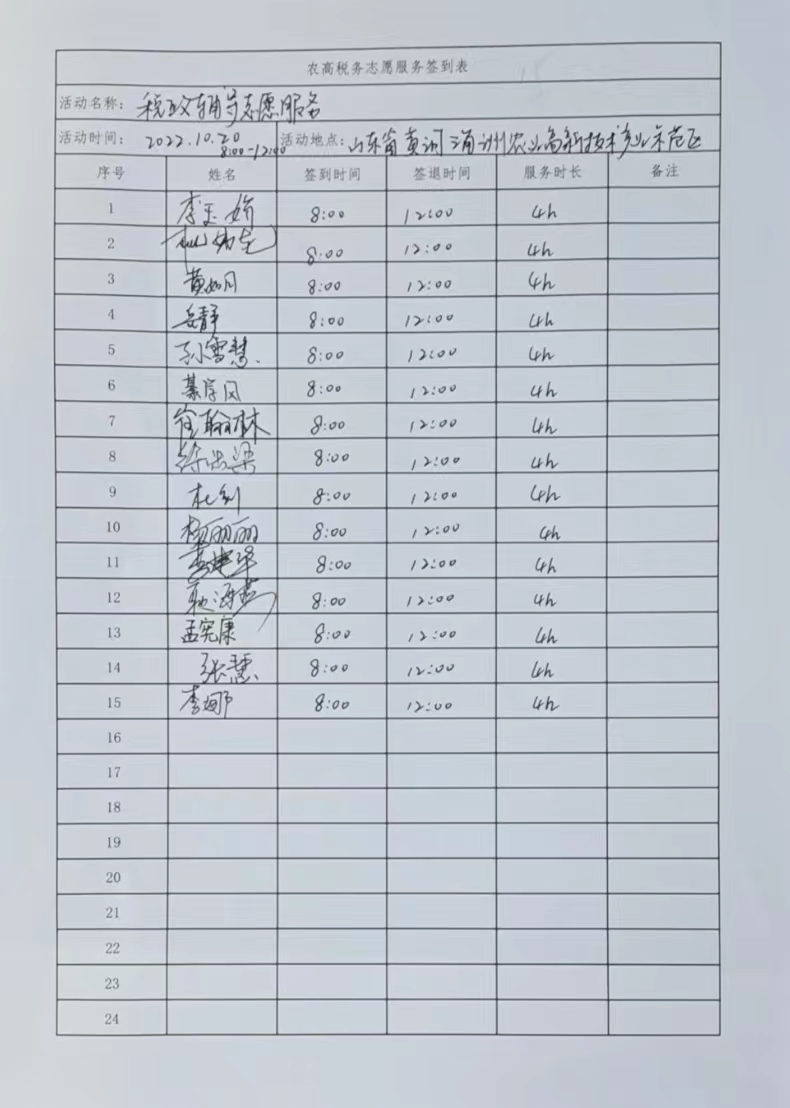 农高税务志愿服务签到表
活动名称: 税政辅导志愿服务
活动时间: 2022.10.20 8:00-12:00 活动地点: 山东省黄河三角洲农业高新技术产业示范区
序号 姓名 签到时间 签退时间 服务时长 备注
1 李玉娇 8:00 12:00 4h
2 8:00 12:00 4h
3 黄如月 8:00 12:00 4h
4 岳静 8:00 12:00 4h
5 孙雪慧 8:00 12:00 4h
6 8:00 12:00 4h
7 8:00 12:00 4h
8 8:00 12:00 4h
9 杜钊 8:00 12:00 4h
10 杨丽丽 8:00 12:00 4h
11 8:00 12:00 4h
12 耿海燕 8:00 12:00 4h
13 孟宪康 8:00 12:00 4h
14 张慧 8:00 12:00 4h
15 李娜 8:00 12:00 4h
16
17
18
19
20
21
22
23
24